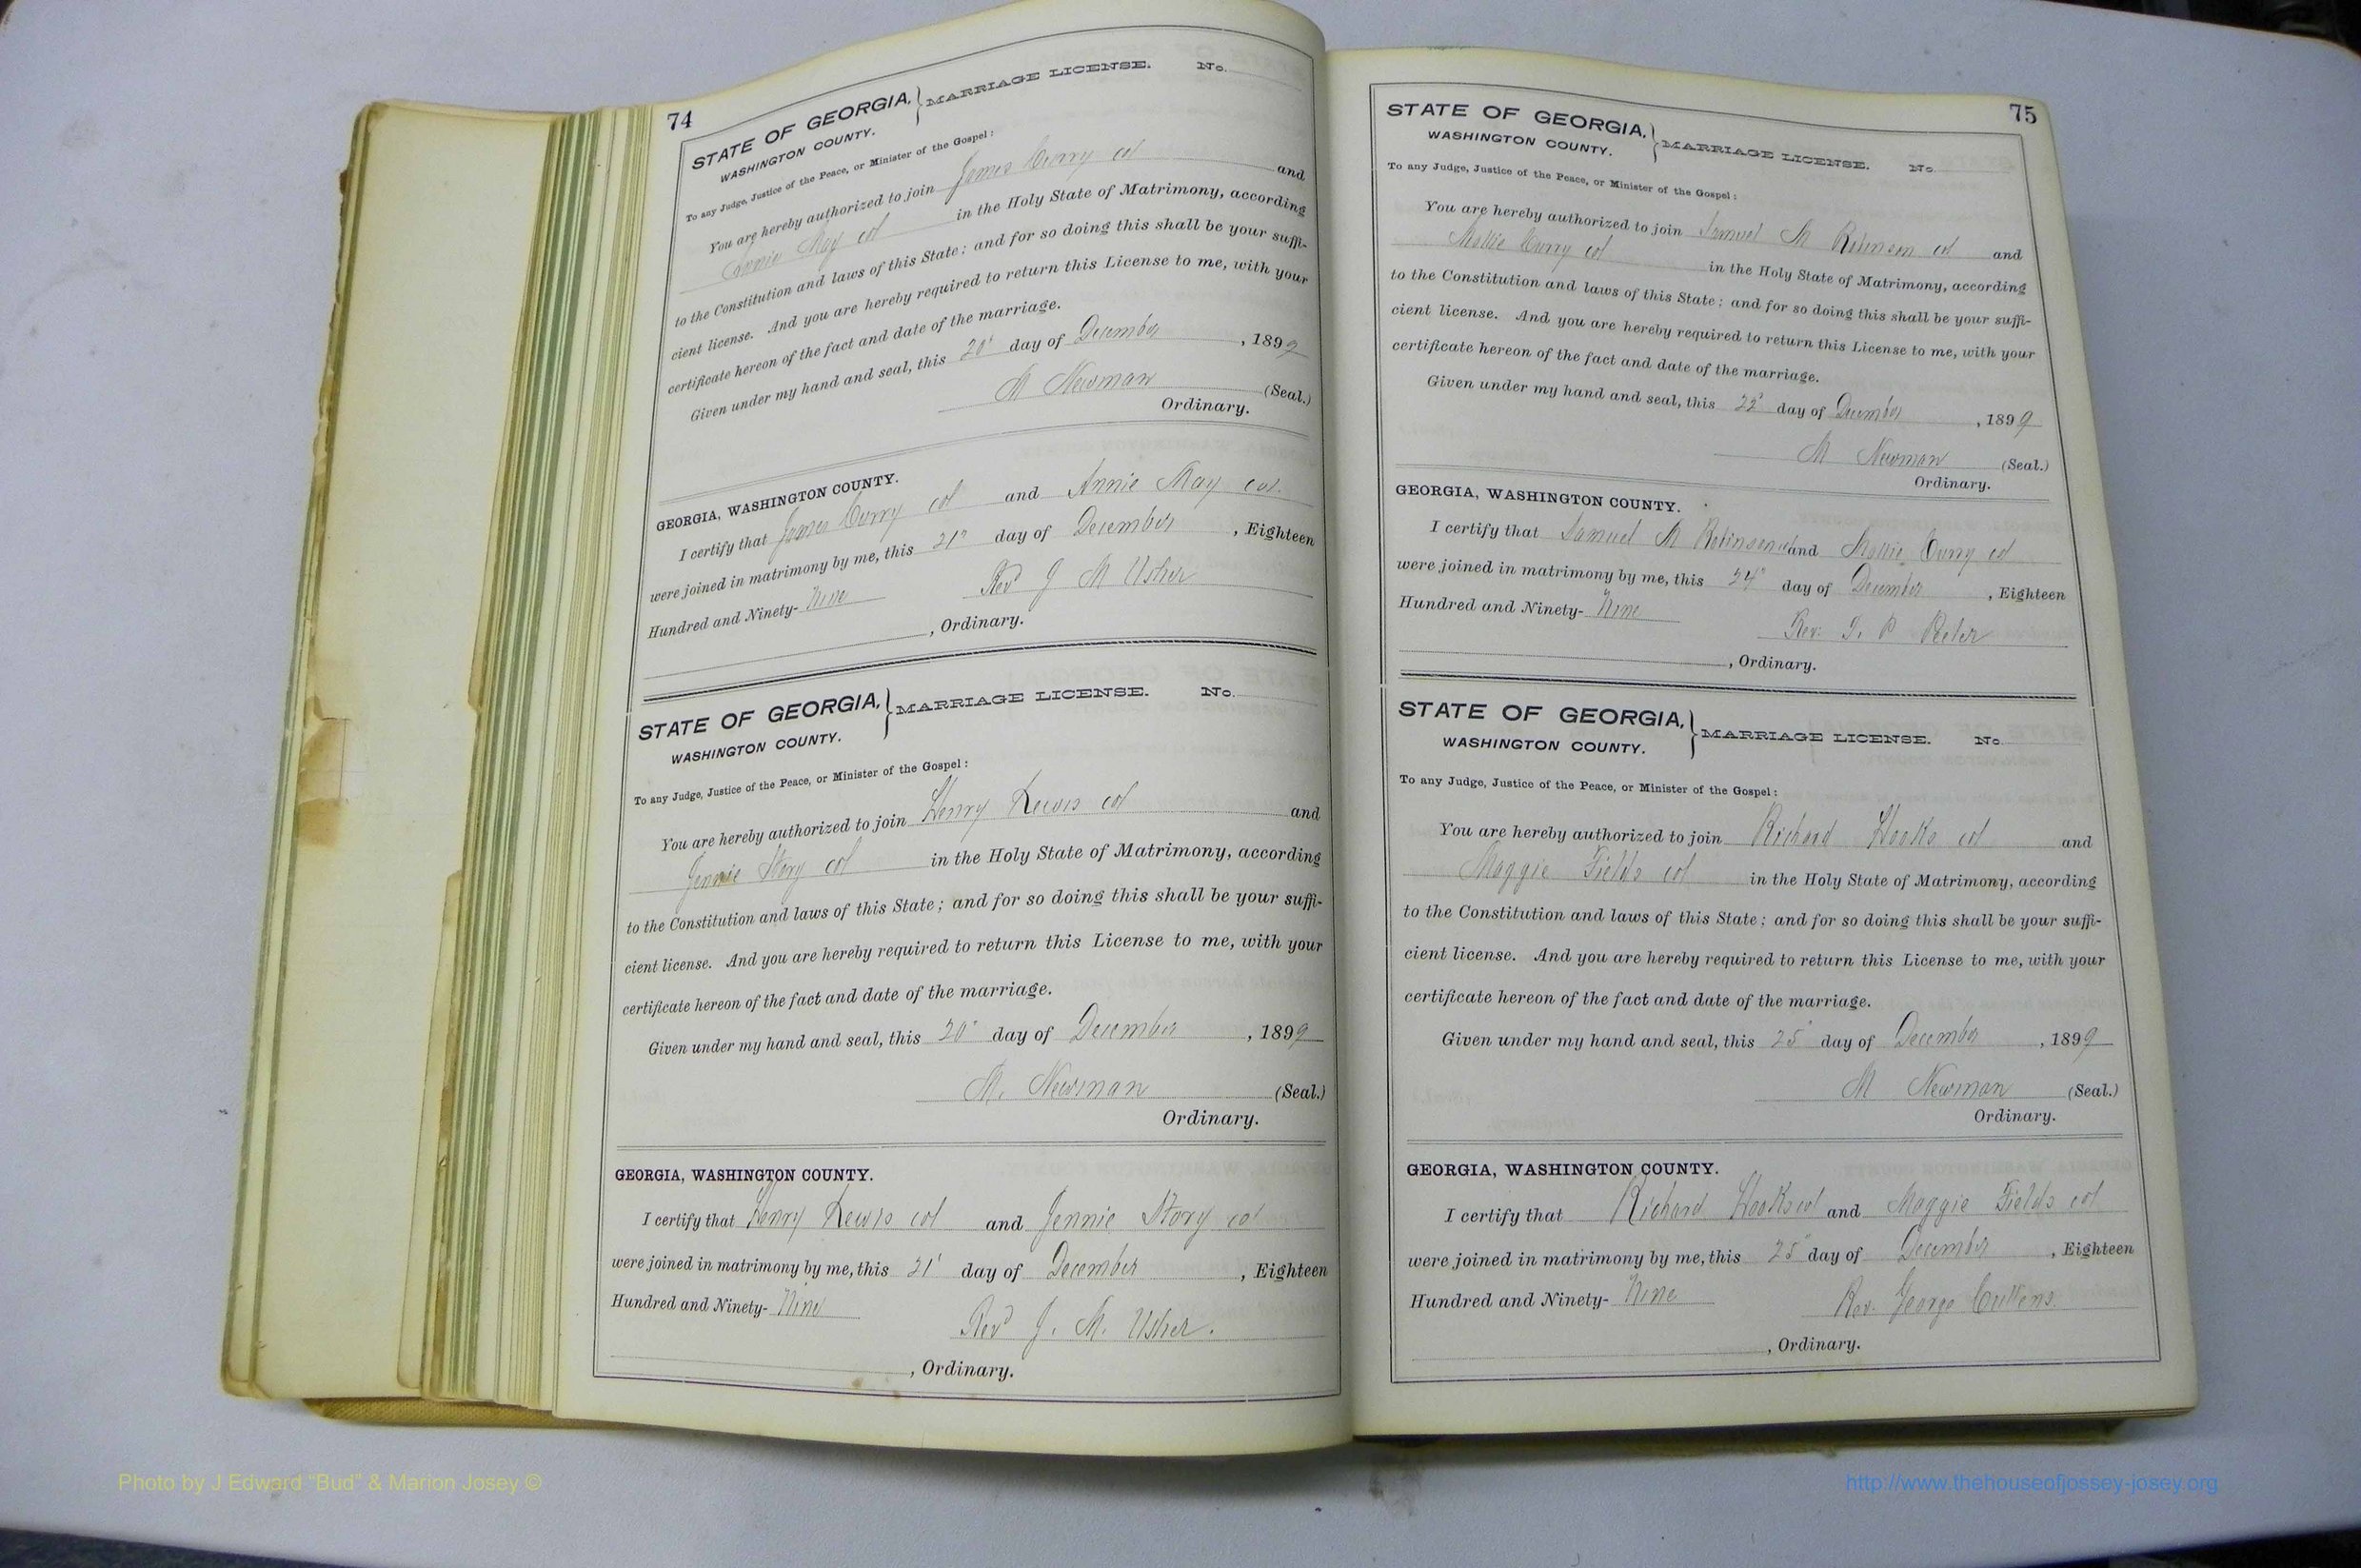 74
STATE OF GEORGIA, } MARRIAGE LICENSE. No.
WASHINGTON COUNTY.
To any Judge, Justice of the Peace, or Minister of the Gospel:
You are hereby authorized to join James Curry col and
Annie May col in the Holy State of Matrimony, according
to the Constitution and laws of this State; and for so doing this shall be your suffi-
cient license. And you are hereby required to return this License to me, with your
certificate hereon of the fact and date of the marriage.
Given under my hand and seal, this 20" day of December, 1899
M Newman (Seal.)
Ordinary.
GEORGIA, WASHINGTON COUNTY.
I certify that James Curry col and Annie May col.
were joined in matrimony by me, this 21" day of December, Eighteen
Hundred and Ninety- Nine Revd J M Usher
, Ordinary.
STATE OF GEORGIA, } MARRIAGE LICENSE. No.
WASHINGTON COUNTY.
To any Judge, Justice of the Peace, or Minister of the Gospel:
You are hereby authorized to join Henry Lewis col and
Jennie Story col in the Holy State of Matrimony, according
to the Constitution and laws of this State; and for so doing this shall be your suffi-
cient license. And you are hereby required to return this License to me, with your
certificate hereon of the fact and date of the marriage.
Given under my hand and seal, this 20" day of December, 1899
M. Newman (Seal.)
Ordinary.
GEORGIA, WASHINGTON COUNTY.
I certify that Henry Lewis col and Jennie Story col
were joined in matrimony by me, this 21' day of December, Eighteen
Hundred and Ninety- Nine
Revd J. M. Usher.
, Ordinary.
75
STATE OF GEORGIA, } MARRIAGE LICENSE. No.
WASHINGTON COUNTY.
To any Judge, Justice of the Peace, or Minister of the Gospel:
You are hereby authorized to join Samuel M Robinson col and
Mollie Curry col in the Holy State of Matrimony, according
to the Constitution and laws of this State; and for so doing this shall be your suffi-
cient license. And you are hereby required to return this License to me, with your
certificate hereon of the fact and date of the marriage.
Given under my hand and seal, this 22" day of December, 1899
M Newman (Seal.)
Ordinary.
GEORGIA, WASHINGTON COUNTY.
I certify that Samuel M Robinson col and Mollie Curry col
were joined in matrimony by me, this 24" day of December, Eighteen
Hundred and Ninety- Nine
Rev. P
, Ordinary.
STATE OF GEORGIA, } MARRIAGE LICENSE. No.
WASHINGTON COUNTY.
To any Judge, Justice of the Peace, or Minister of the Gospel:
You are hereby authorized to join Richard Hooks col and
Maggie Fields col in the Holy State of Matrimony, according
to the Constitution and laws of this State; and for so doing this shall be your suffi-
cient license. And you are hereby required to return this License to me, with your
certificate hereon of the fact and date of the marriage.
Given under my hand and seal, this 25" day of December, 1899
M Newman (Seal.)
Ordinary.
GEORGIA, WASHINGTON COUNTY.
I certify that Richard Hooks col and Maggie Fields col
were joined in matrimony by me, this 25" day of December, Eighteen
Hundred and Ninety- Nine
Rev. George Cullens.
, Ordinary.
Photo by J Edward "Bud" & Marion Josey ©
http://www.thehouseofjossey-josey.org